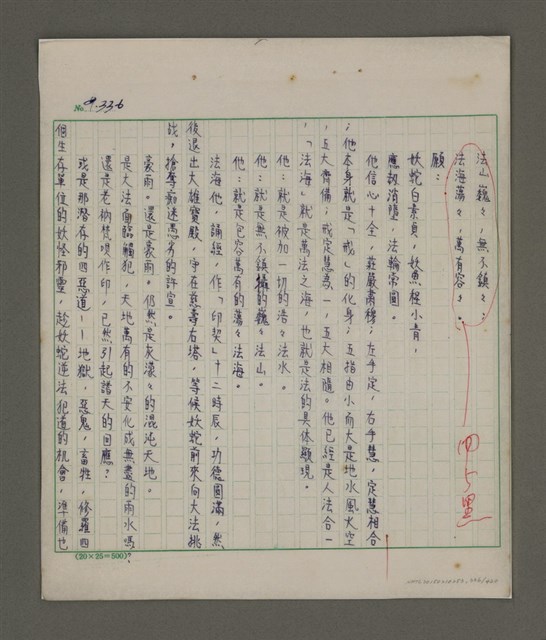 No. 9.33.6
法山巍々,無不鎮々;
法海蕩々,萬有容々。
四号黑
願:
妖蛇白素貞,妖魚程小青,
應劫消隨,法輪常圓。
他信心十全,莊嚴肅穆;左手定,右手慧,定慧相合
;他本身就是「戒」的化身;五指由小而大是地水風火空
,五大齊備;戒定慧為一,五大相隨。他已經是人法合一
,「法海」就是萬法之海,也就是法的具体顯現。
他:就是被加一切的浩々法水。
他:就是無不鎮懾的巍々法山。
他:就是包容萬有的蕩々法海。
法海他,誦經,作「印契」十二時辰,功德圓滿,然
後退出大雄寶殿,守在慈壽右塔,等候妖蛇前來向大法挑
战,搶奪痴迷愚劣的許宣。
豪雨。還是豪雨。仍然是灰濛々的混沌天地。
是大法面臨觸犯,天地萬有的不安化成無盡的雨水嗎?
還是老衲梵唄作印,已然引起諸天的回應?
或是那潛存的四惡道——地獄,惡鬼,畜牲,修羅四
個生存單位的妖怪邪靈,趁妖蛇逆法犯道的机會,準備也
(20×25=500)